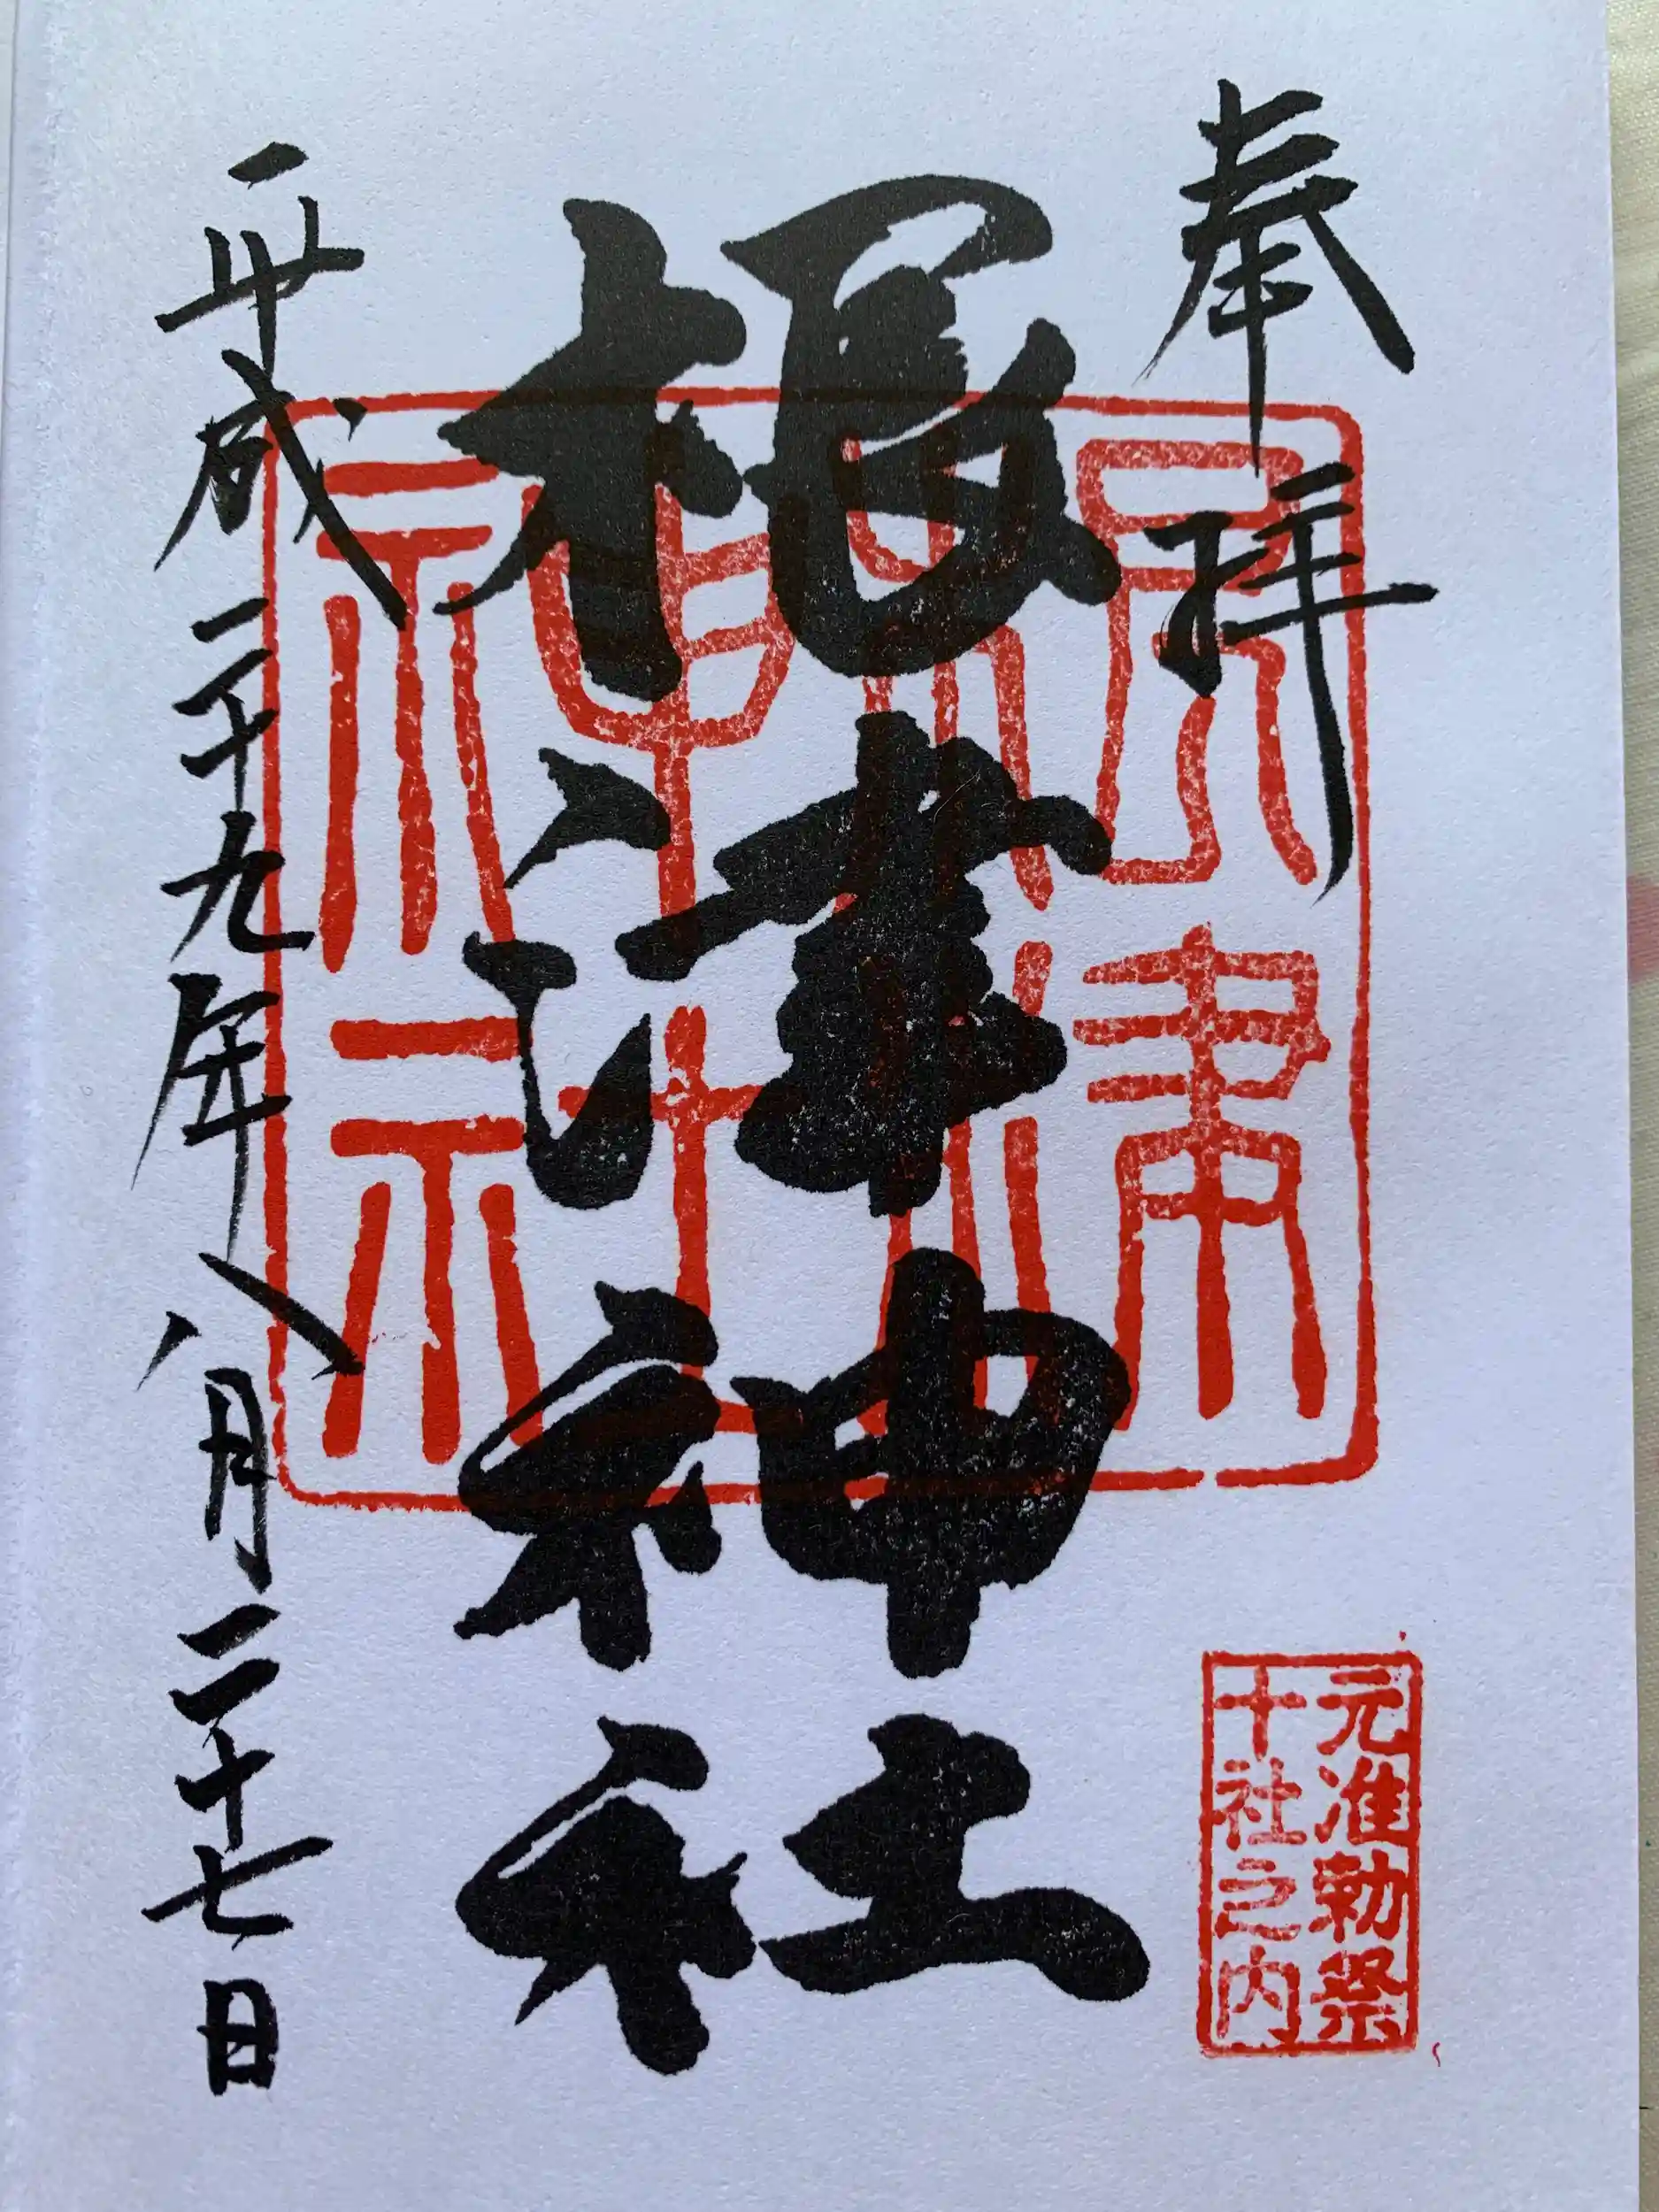 奉拝
元准勅祭
十社之内
根津神社
根津
神社
平成二十九年八月二十七日